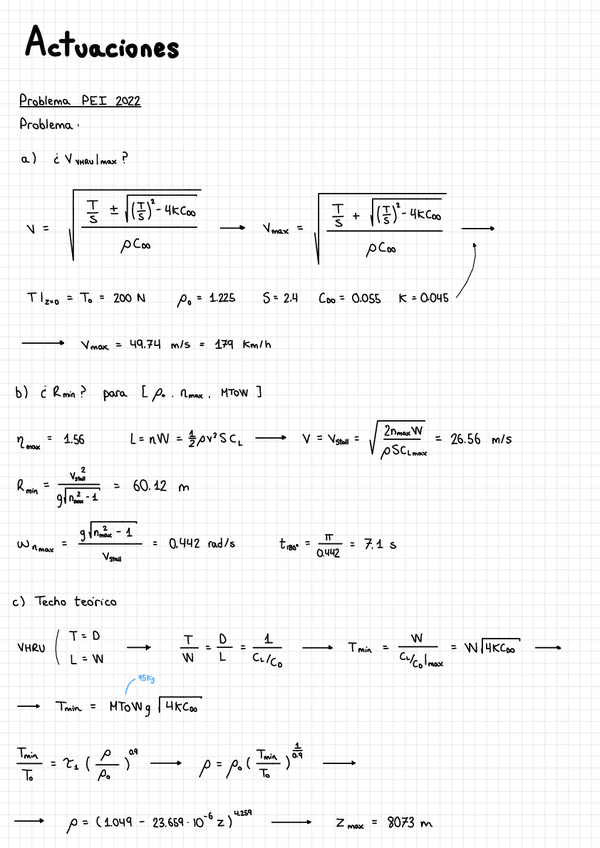 Actuaciones
Problema PEI 2022
Problema.
a) ¿ V_VHRU|max ?
V = √( (T/S ± √((T/S)² - 4KC_D0)) / (ρC_D0) ) → V_max = √( (T/S + √((T/S)² - 4KC_D0)) / (ρC_D0) ) →
T|_z=0 = T₀ = 200 N ρ₀ = 1.225 S = 2.4 C_D0 = 0.055 K = 0.045
→ V_max = 49.74 m/s = 179 Km/h
b) ¿ R_min ? para [ ρ₀ , n_max , MTOW ]
η_max = 1.56 L = nW = ½ρv²SC_L → V = V_stall = √( 2n_max W / (ρSC_Lmax) ) = 26.56 m/s
R_min = V_stall² / (g√(n²_max - 1)) = 60.12 m
ω_nmax = g√(n²_max - 1) / V_stall = 0.442 rad/s t_180° = π / 0.442 = 7.1 s
c) Techo teórico
VHRU ( T = D L = W → T/W = D/L = 1 / (C_L/C_D) → T_min = W / (C_L/C_D|max) = W√(4KC_D0) →
95Kg
→ T_min = MTOW g √(4KC_D0)
T_min/T₀ = τ₁ (ρ/ρ₀)^0.9 → ρ = ρ₀ (T_min/T₀)^(1/0.9) →
→ ρ = (1.049 - 23.659·10⁻⁶ z)^4.259 → z_max = 8073 m